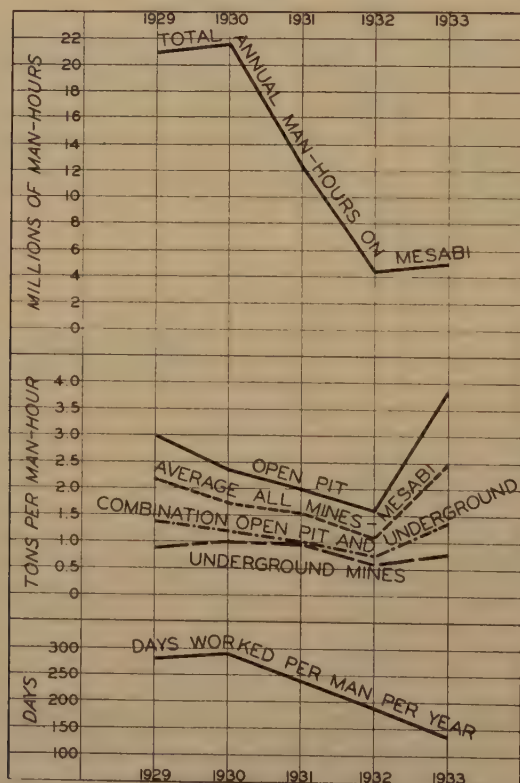 1929 1930 1931 1932 1933
MILLIONS OF MAN-HOURS
22
20
18
16
14
12
10
8
6
4
2
0
TOTAL ANNUAL MAN-HOURS ON MESABI
TONS PER MAN-HOUR
4.0
3.5
3.0
2.5
2.0
1.5
1.0
.5
0
OPEN PIT
AVERAGE ALL MINES-MESABI
COMBINATION OPEN PIT AND UNDERGROUND
UNDERGROUND MINES
DAYS
300
250
200
150
100
DAYS WORKED PER MAN PER YEAR
1929 1930 1931 1932 1933